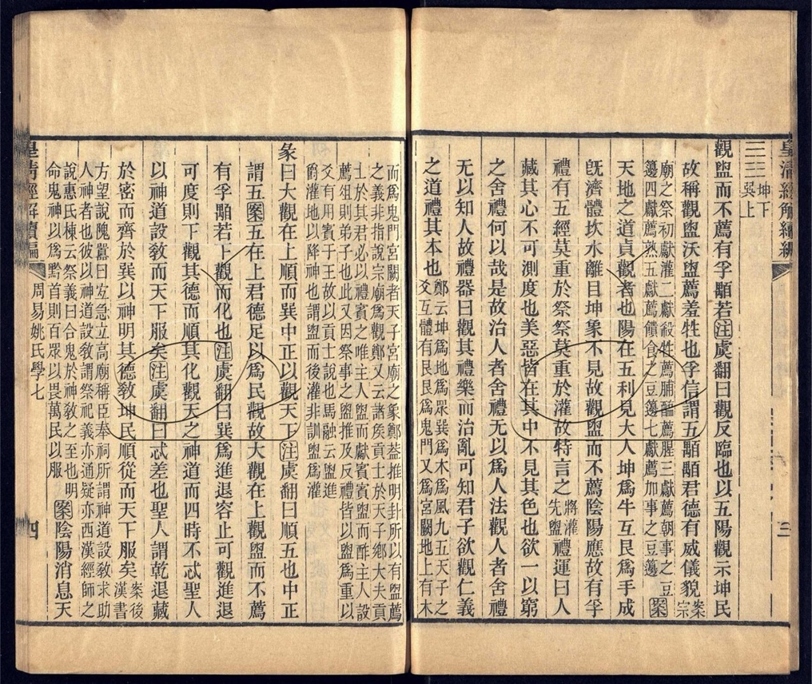 皇清經解續編
三
坤下
巽上
觀盥而不薦有孚顒若注虞翻曰觀反臨也以五陽觀示坤民
故稱觀盥沃盥薦羞牲也孚信謂五顒顒君德有威儀貌案宗
廟之祭初獻灌二獻殺牲薦腯醢薦腥三獻薦朝事之豆
籩四獻薦熟五獻薦饋食之豆籩七獻薦加事之豆籩案
天地之道貞觀者也陽在五利見大人坤爲牛互艮爲手成
旣濟體坎水離目坤象不見故觀盥而不薦陰陽應故有孚
禮有五經莫重於祭祭莫重於灌故特言之將灌先盥禮運曰人
藏其心不可測度也美惡皆在其中不見其色也欲一以窮
之舍禮何以哉是故治人者舍禮无以爲人法觀人者舍禮
无以知人故禮器曰觀其禮樂而治亂可知君子欲觀仁義
之道禮其本也鄭云坤爲地爲眾巽爲木爲風九五天子之
爻互體有艮艮爲鬼門又爲宮闕地上有木
而爲鬼門宮闕者天子宮廟之象鄭葢推明卦所以有盥薦
之義非指說宗廟爲觀鄭又云諸矦貢士於天子鄉大夫貢
士於其君必以禮賓之唯主人盥而獻賓賓盥而酢主人設
薦俎則弟子也此又因祭事之盥推及反禮皆以盥爲重以
爻有用賓于王故以貢士說也馬融云盥進
爵灌地以降神也謂盥而後灌非訓盥爲灌
彖曰大觀在上順而巽中正以觀天下注虞翻曰順五也中正
謂五案五在上君德足以爲民觀故大觀在上觀盥而不薦
有孚顒若下觀而化也注虞翻曰巽爲進退容止可觀進退
可度則下觀其德而順其化觀天之神道而四時不忒聖人
以神道設敎而天下服矣注虞翻曰忒差也聖人謂乾退藏
於密而齊於巽以神明其德敎坤民順從而天下服矣案後漢書
方望說隗囂曰宜急立高廟稱臣奉祠所謂神道設敎求助
人神者也彼以神道設敎謂祭祀義亦通疑亦西漢經師之
說惠氏棟云祭義曰合鬼於神敎之至也明
命鬼神以爲黔首則百眾以畏萬民以服案陰陽消息天
皇清經解續編
周易姚氏學七
四